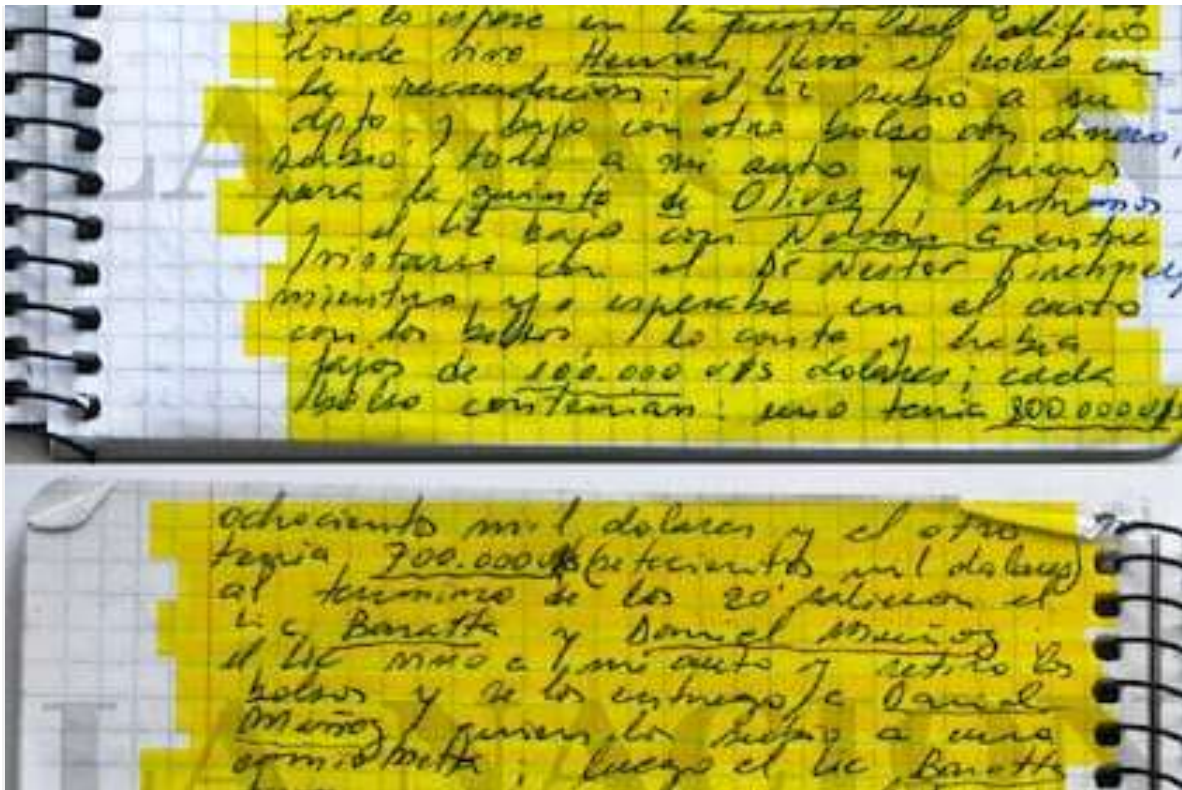 que lo espere en la puerta del edificio
donde vivo Hernan, llevó el bolso con
la recaudacion; el Lic subió a su
dpto y bajo con otro bolso con dinero,
subió todo a mi auto y fuimos
para la quinta de Olivos, entramos
y el Lic bajo con Nelson a entre
vistarse con el Dr Nestor Kirchner,
mientras yo esperaba en el auto
con los bolsos lo conte y habia
fajos de 100.000 U$S dolares; cada
bolso contenian: uno tenia 800.000 U$S
ochocientos mil dolares y el otro
tenia 700.000 U$S (setecientos mil dolares)
al termino de los 20' salieron el
Lic Baratta y Daniel Muñoz
el Lic vino a mi auto y retiro los
bolsos y se los entrego a Daniel
Muñoz, quien los subio a una
camioneta; luego el Lic Baratta
LA NACION
LA NACION